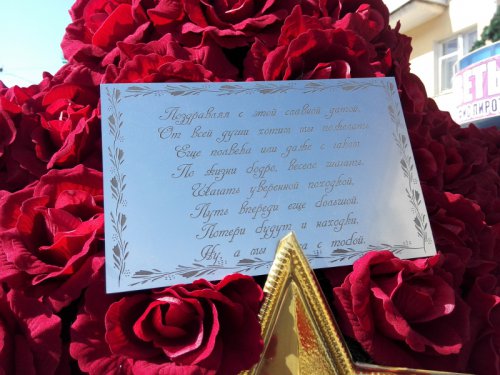 Поздравляя с этой славной датой,
От всей души хотим мы пожелать
Еще полвека или даже с гаком
По жизни бодро, весело шагать.
Шагать уверенной походкой,
Путь впереди еще большой.
Потери будут и находки,
Ну, а мы с тобой.
ЕТЫ